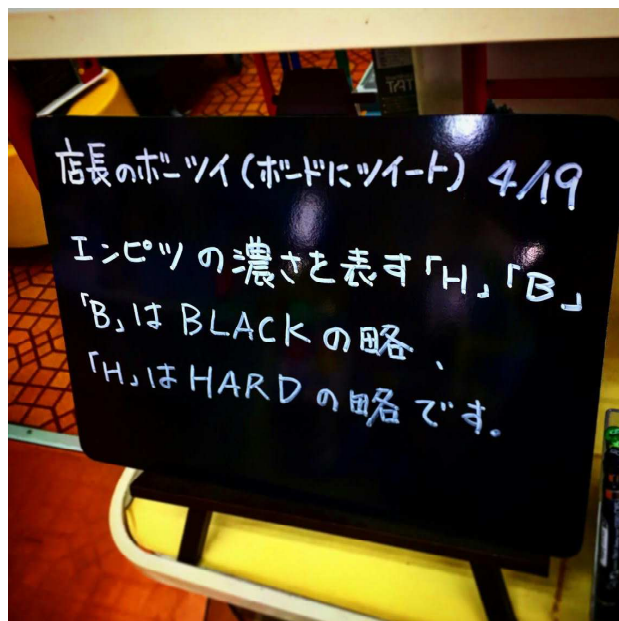 店長のボーツイ(ボードにツイート) 4/19
エンピツの濃さを表す「H」「B」
「B」は BLACKの略、
「H」は HARDの略です。